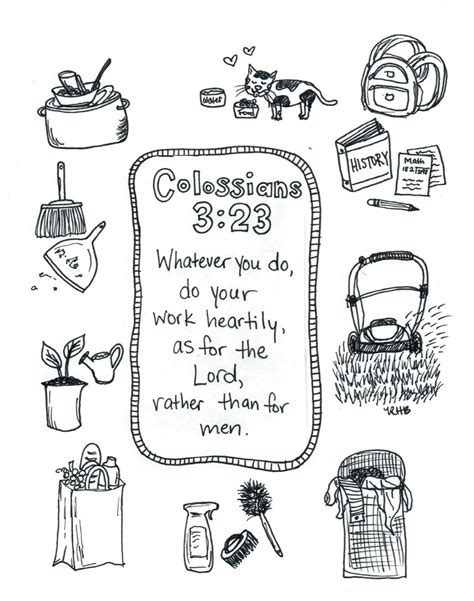 Water
Food
HISTORY
Math
Colossians
3:23
Whatever you do,
do your
work heartily,
as for the
Lord,
rather than for
men.
YRHB